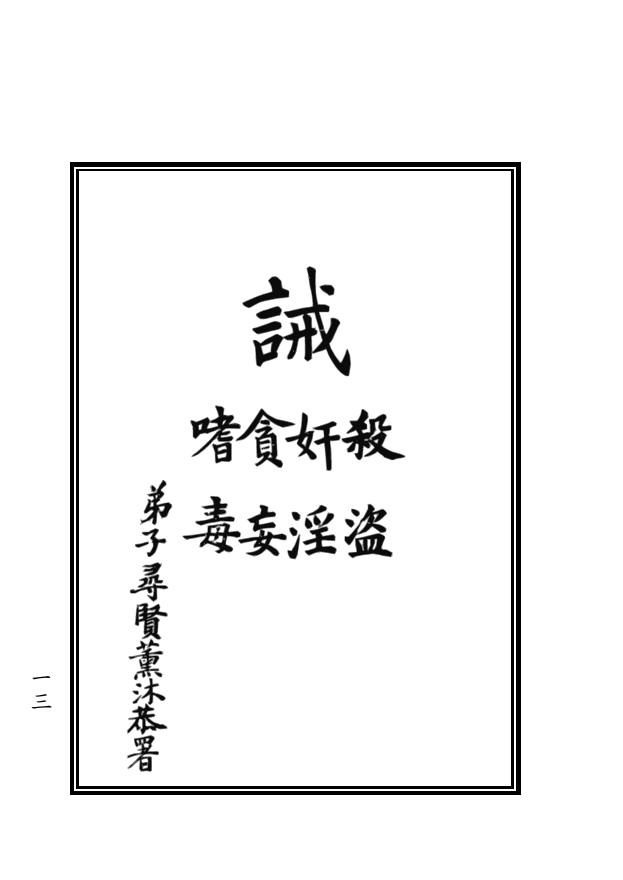 誡
殺盜
奸淫
貪妄
嗜毒
弟子尋賢薰沐恭署
一三